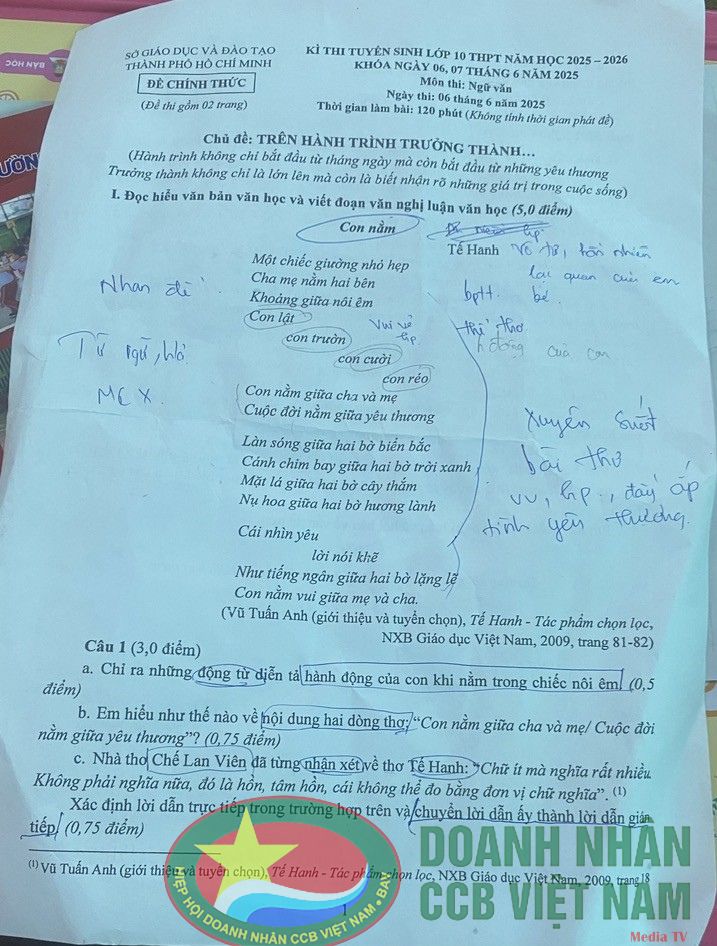 BẠN HỌC
SỞ GIÁO DỤC VÀ ĐÀO TẠO
THÀNH PHỐ HỒ CHÍ MINH
ĐỀ CHÍNH THỨC
(Đề thi gồm 02 trang)
KÌ THI TUYỂN SINH LỚP 10 THPT NĂM HỌC 2025 – 2026
KHÓA NGÀY 06, 07 THÁNG 6 NĂM 2025
Môn thi: Ngữ văn
Ngày thi: 06 tháng 6 năm 2025
Thời gian làm bài: 120 phút (Không tính thời gian phát đề)
Chủ đề: TRÊN HÀNH TRÌNH TRƯỞNG THÀNH…
(Hành trình không chỉ bắt đầu từ tháng ngày mà còn bắt đầu từ những yêu thương
Trưởng thành không chỉ là lớn lên mà còn là biết nhận rõ những giá trị trong cuộc sống)
I. Đọc hiểu văn bản văn học và viết đoạn văn nghị luận văn học (5,0 điểm)
Con nằm
Tế Hanh
Vô tư, hồn nhiên
lạc quan của em
bé.
bptt.
Nhan đề
Một chiếc giường nhỏ hẹp
Cha mẹ nằm hai bên
Khoảng giữa nôi êm
Con lật
con trườn
con cười
con réo
vui vẻ
hp
thể thơ
của con
Từ ngữ, h/a
MCX.
Con nằm giữa cha và mẹ
Cuộc đời nằm giữa yêu thương
Làn sóng giữa hai bờ biển bắc
Cánh chim bay giữa hai bờ trời xanh
Mặt lá giữa hai bờ cây thắm
Nụ hoa giữa hai bờ hương lành
xuyên suốt
bài thơ
vv, hp, đầy ắp
tình yêu thương.
Cái nhìn yêu
lời nói khẽ
Như tiếng ngân giữa hai bờ lặng lẽ
Con nằm vui giữa mẹ và cha.
(Vũ Tuấn Anh (giới thiệu và tuyển chọn), Tế Hanh - Tác phẩm chọn lọc,
NXB Giáo dục Việt Nam, 2009, trang 81-82)
Câu 1 (3,0 điểm)
a. Chỉ ra những động từ diễn tả hành động của con khi nằm trong chiếc nôi êm. (0,5
điểm)
b. Em hiểu như thế nào về nội dung hai dòng thơ: “Con nằm giữa cha và mẹ/ Cuộc đời
nằm giữa yêu thương”? (0,75 điểm)
c. Nhà thơ Chế Lan Viên đã từng nhận xét về thơ Tế Hanh: “Chữ ít mà nghĩa rất nhiều.
Không phải nghĩa nữa, đó là hồn, tâm hồn, cái không thể đo bằng đơn vị chữ nghĩa”. (1)
Xác định lời dẫn trực tiếp trong trường hợp trên và chuyển lời dẫn ấy thành lời dẫn gián
tiếp. (0,75 điểm)
(1) Vũ Tuấn Anh (giới thiệu và tuyển chọn), Tế Hanh - Tác phẩm chọn lọc, NXB Giáo dục Việt Nam, 2009, trang 18
1
HIỆP HỘI DOANH NHÂN CCB VIỆT NAM
DOANH NHÂN
CCB VIỆT NAM
Media TV